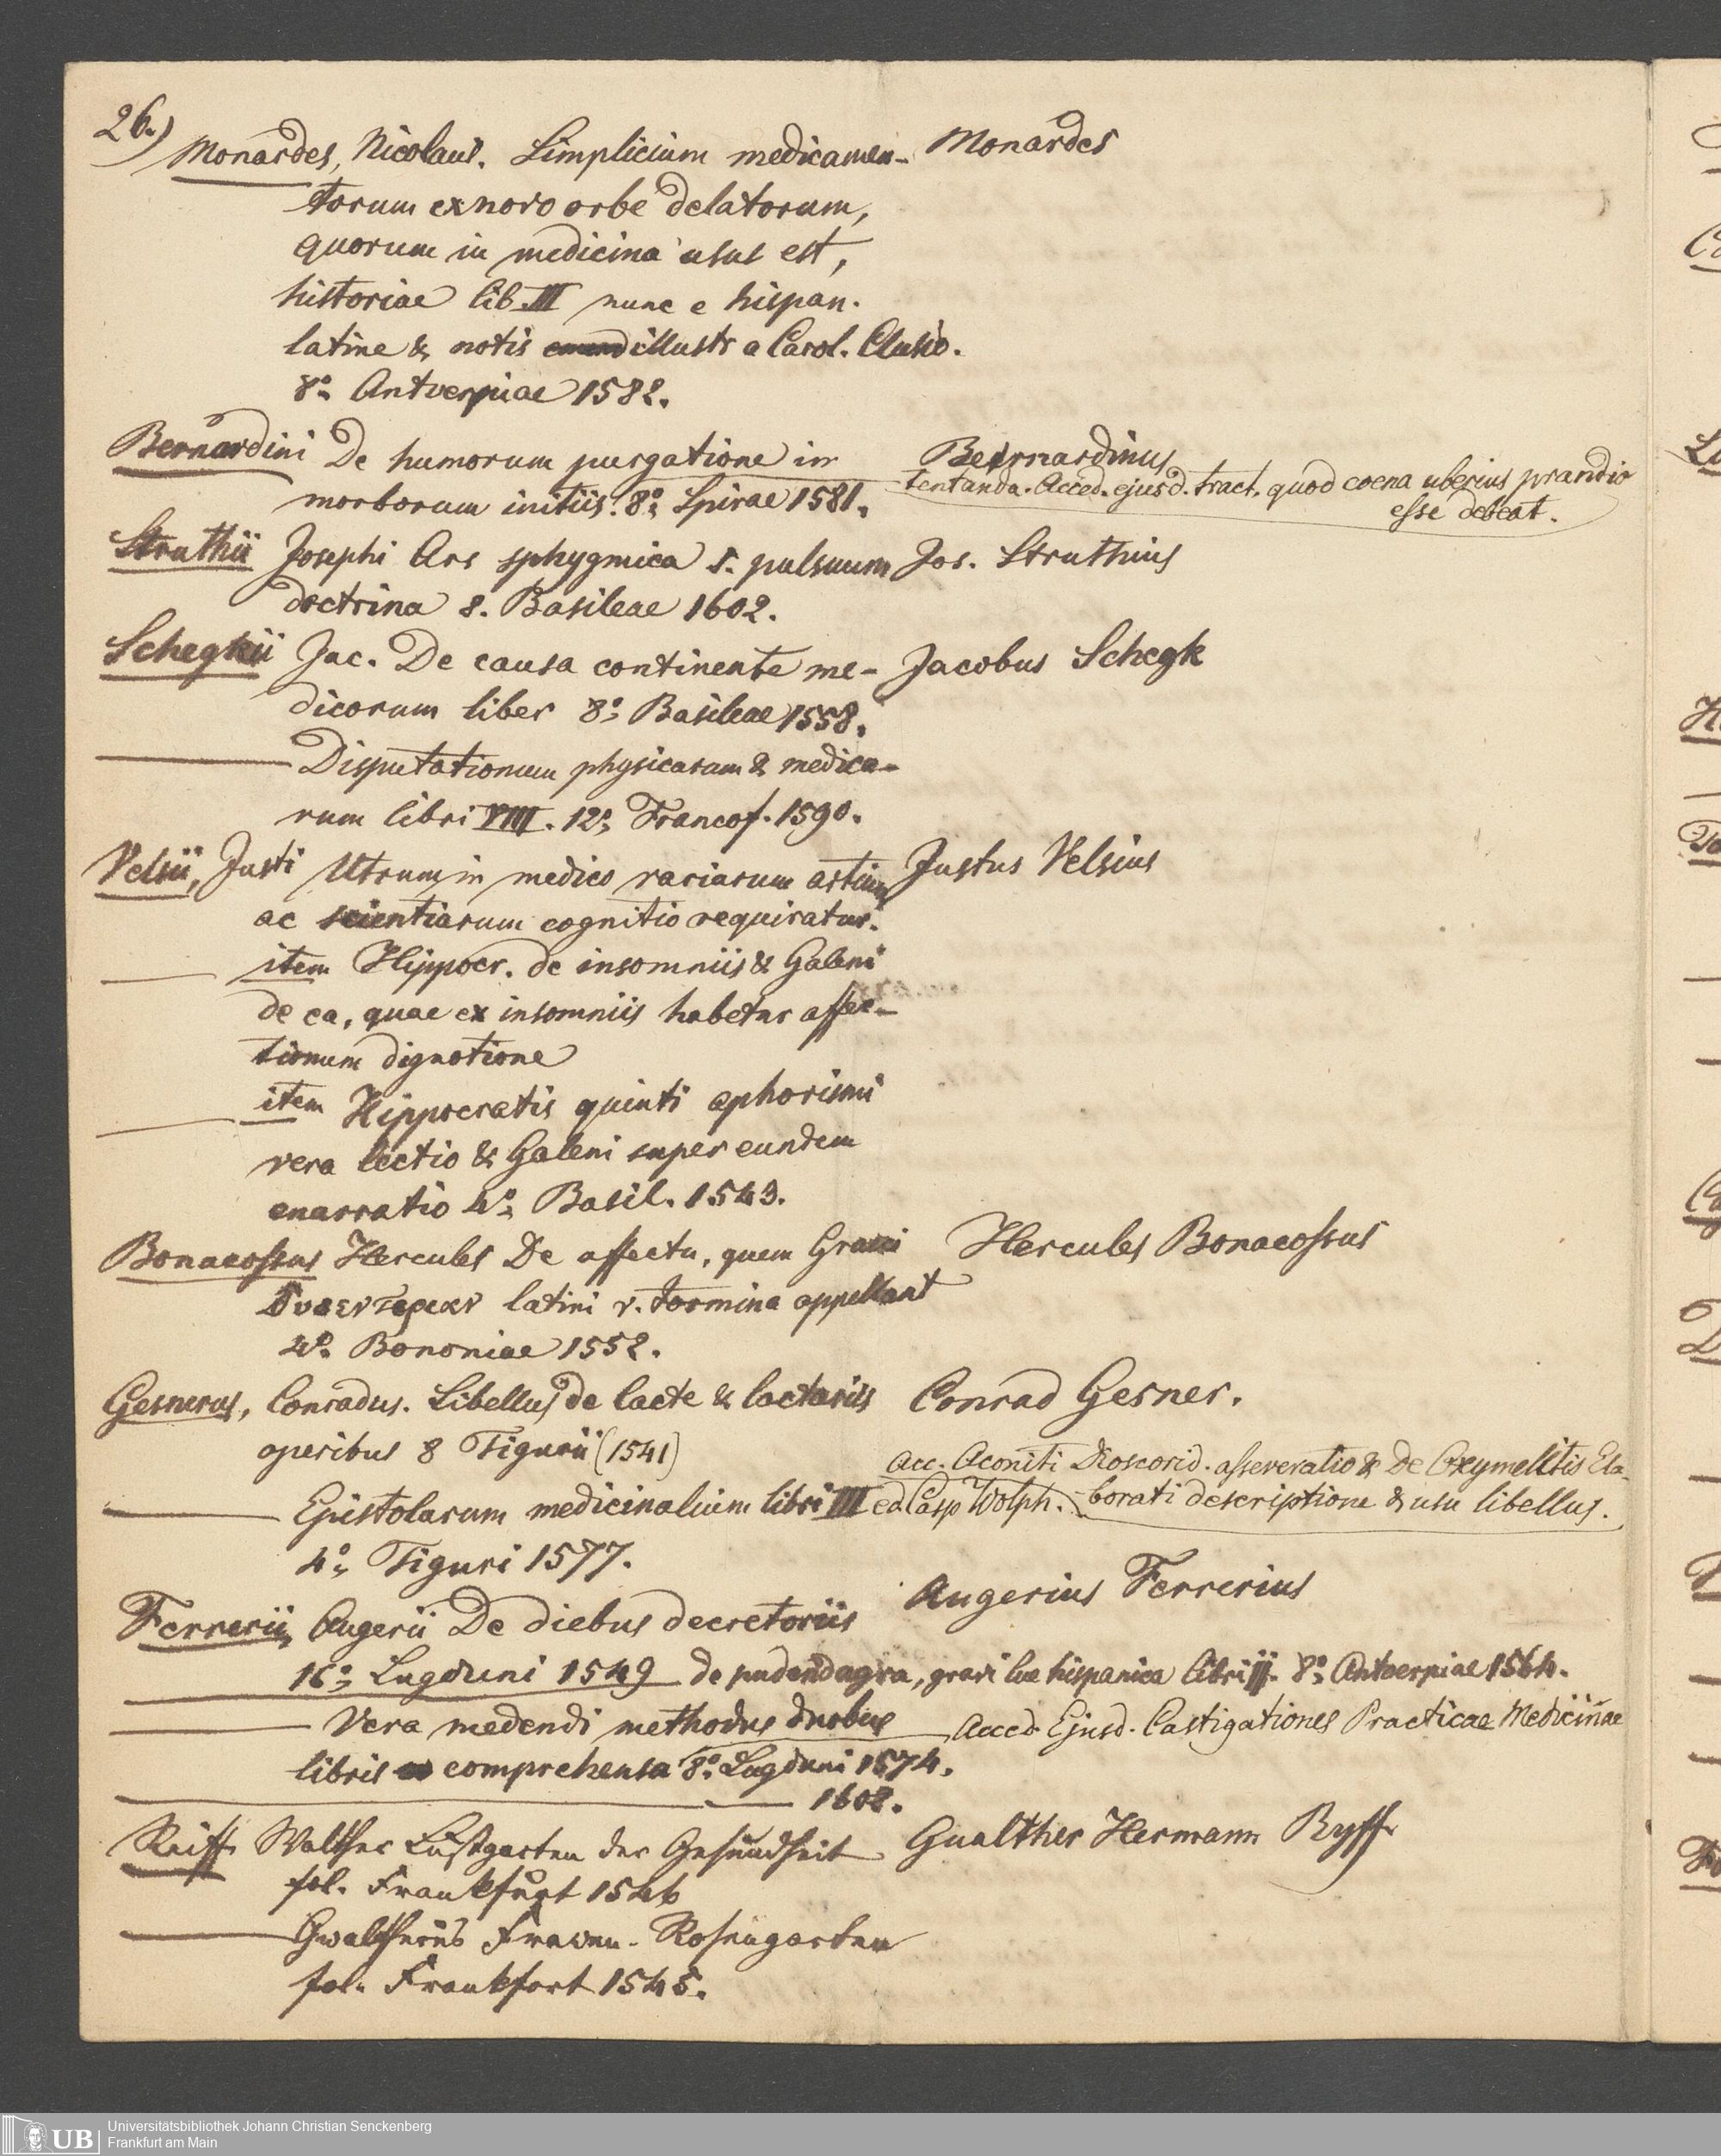 26.)
Monardes, Nicolaus. Simplicium medicamen- Monardes
torum ex novo orbe delatorum,
quorum in medicina usus est,
historiae lib. III nunc e hispan.
latine & notis illustr a Carol. Clusio.
8º Antverpiae 1582.
Bernardini De humorum purgatione in Bernardinus
morborum initiis. 8º, Spirae 1581. tentanda. Acced. ejusd. tract. quod coena uberius prandio
esse debeat.
Struthii Josephi Ars sphygmica s. pulsuum Jos. Struthius
doctrina 8. Basileae 1602.
Schegkii Jac. De causa continente me- Jacobus Schegk
dicorum liber 8º, Basileae 1558.
Disputationum physicarum & medica-
rum libri VIII. 12º, Francof. 1590.
Velsii, Justi Utrum in medico variarum artium Justus Velsius
ac scientiarum cognitio requiratur.
item Hippocr. de insomniis & Galeni
de ea, quae ex insomniis habetur affec-
tionum dignotione
item Hippocratis quinti aphorismi
vera lectio & Galeni super eundem
enarratio 4º, Basil. 1543.
Bonacossus Hercules De affectu, quem Graeci Hercules Bonacossus
latini v. tormina appellant
4º. Bononiae 1552.
Gesnerus, Conradus. Libellus de lacte & lactariis Conrad Gesner.
operibus 8 Tigurii (1541)
acc. Aconiti Dioscorid. asseveratio & De Oxymellitis Ela-
Epistolarum medicinalium libri III ed Casp Wolph. borati descriptione & usu libellus.
4º, Tiguri 1577.
Ferrerii, Augerii De diebus decretoriis Augerius Ferrerius
16º, Lugduni 1549 de pudendagra, gravi lue hispanica libri II. 8º, Antverpiae 1564.
Vera medendi methodus duobus Acced. Ejusd. Castigationes Practicae Medicinae
libris comprehensa 8º, Lugduni 1574.
1602.
Reiff Walther Lustgarten der Gesundheit Gualther Hermann Ryff
fol. Frankfurt 1546
Gwaltherus Frawen-Rosengarten
fol. Frankfort 1545.
UB
Universitätsbibliothek Johann Christian Senckenberg
Frankfurt am Main